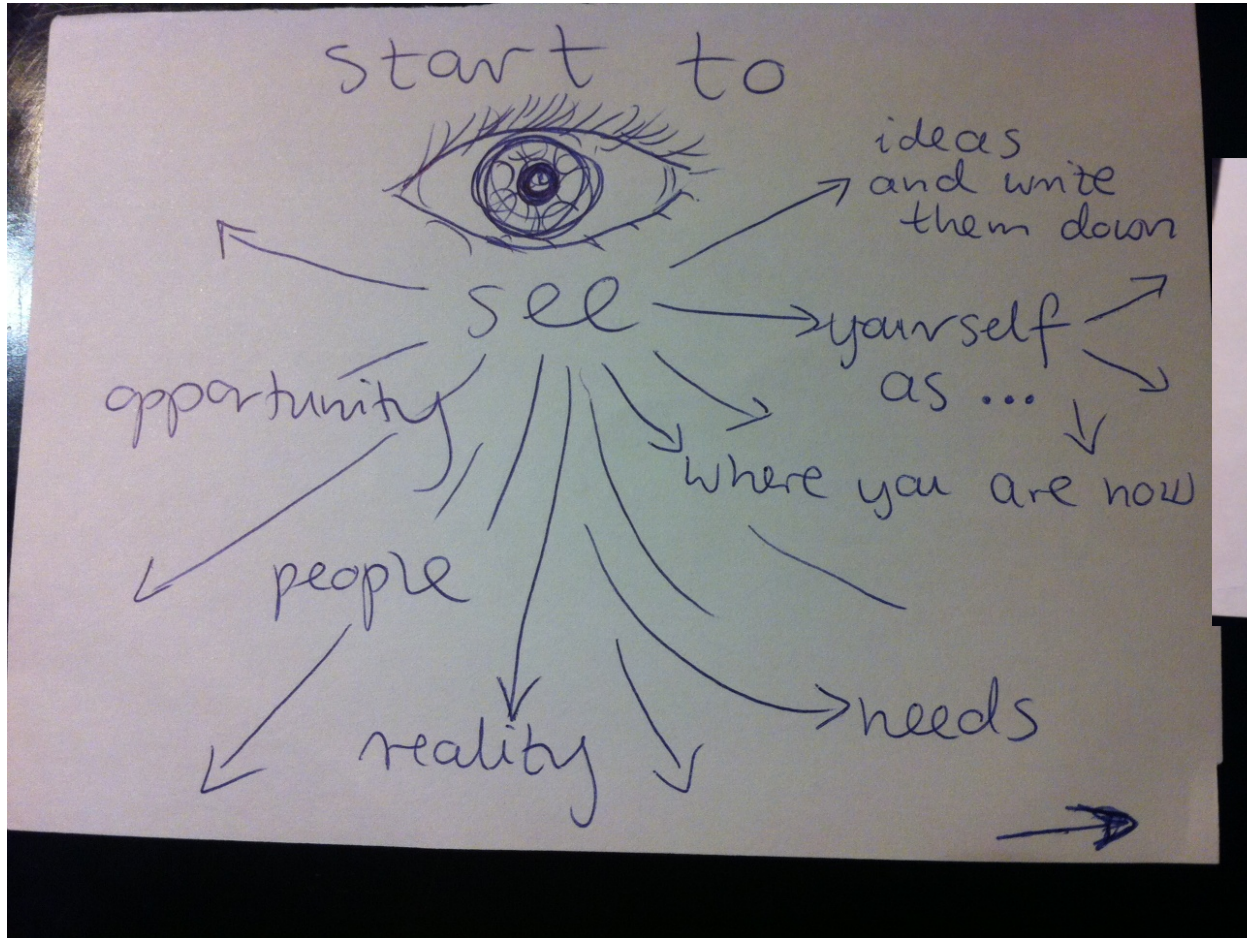 start to
see
ideas
and write
them down
yourself
as ...
where you are now
opportunity
people
reality
needs